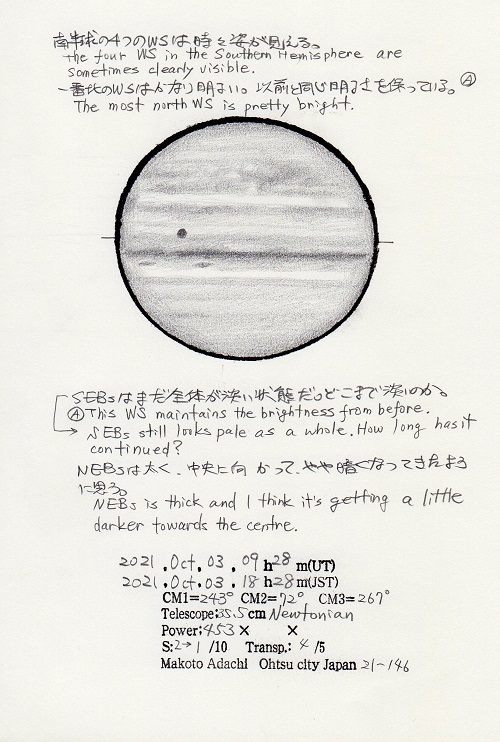 南半球の4つのWSは時々姿が見える。
The four WS in the Southern Hemisphere are
sometimes clearly visible.
一番北のWSはかなり明るい。以前と同じ明るさを保っている。Ⓐ
The most north WS is pretty bright.
SEBsはまだ全体が淡い状態だ。どこまで淡いのか。
Ⓐ This WS maintains the brightness from before.
SEBs still looks pale as a whole. How long has it
continued?
NEBsは太く、中央に向かって、やや暗くなってきたように思う。
NEBs is thick and I think it's getting a little
darker towards the centre.
2021.Oct.03.09h28m(UT)
2021.Oct.03.18h28m(JST)
CM1=243° CM2=72° CM3=267°
Telescope:35.5cm Newtonian
Power:453× ×
S:2→1/10 Transp.:4/5
Makoto Adachi Ohtsu city Japan 21-146